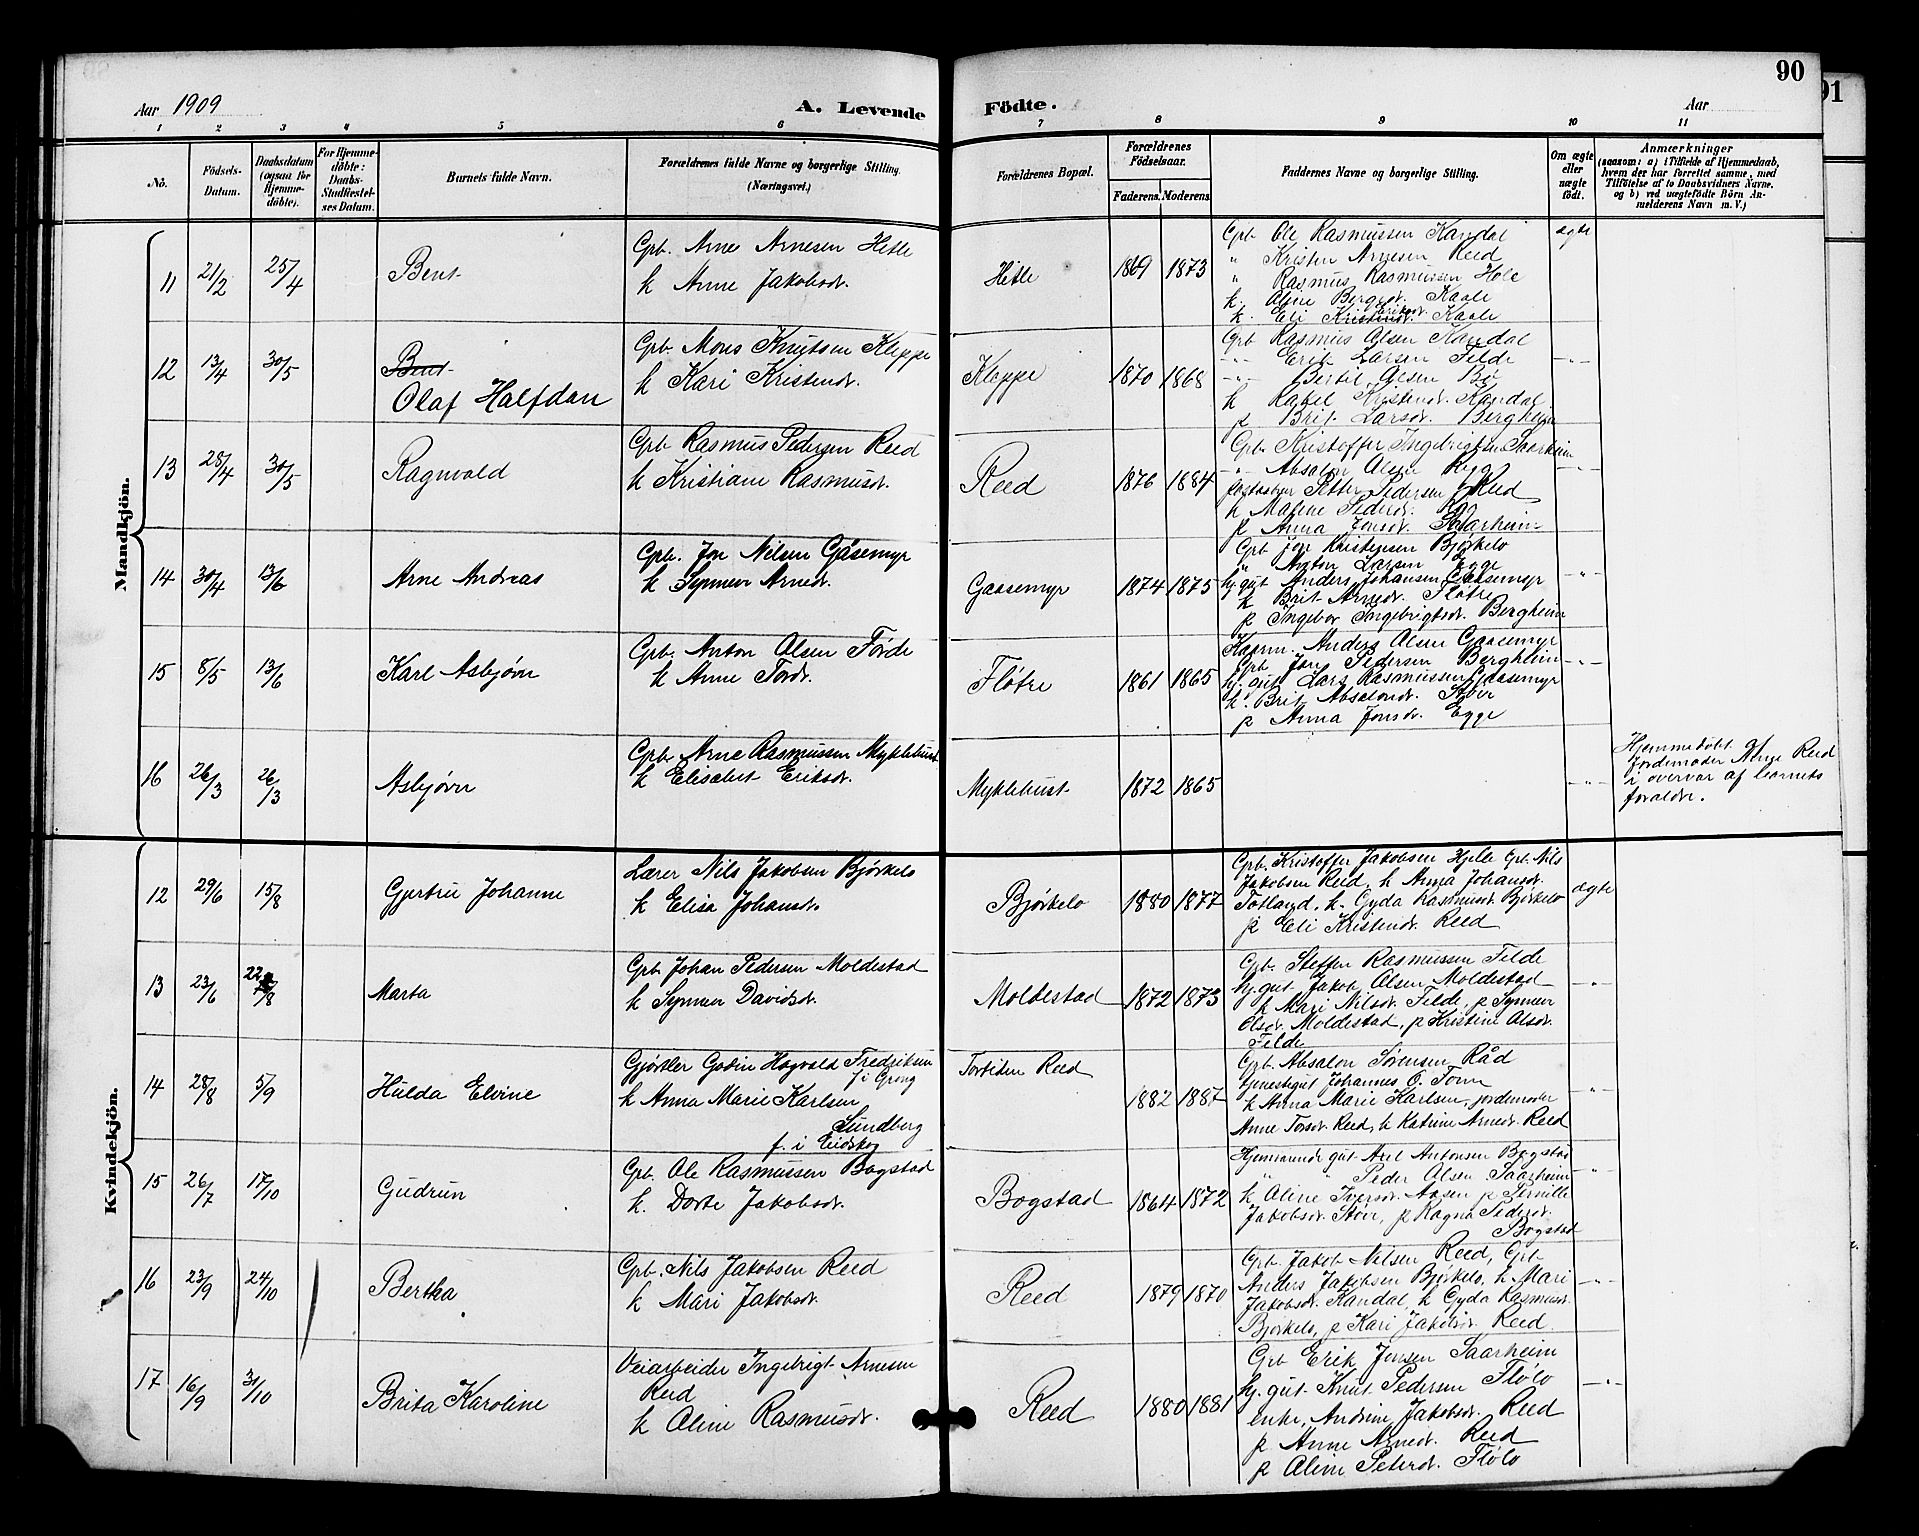 90
91
Aar 1909
A. Levende
Födte.
Aar
1 2 3 4 5 6 7 8 9 10 11
No.
Födsels-
Datum.
Daabsdatum
(ogsaa for
Hjemme-
döbte).
For Hjemme-
döbte:
Daabs-
Stadfæstel-
ses Datum.
Barnets fulde Navn.
Forældrenes fulde Navne og borgerlige Stilling.
(Næringsvei.)
Forældrenes Bopæl.
Forældrenes
Födselsaar.
Faderens. Moderens.
Faddernes Navne og borgerlige Stilling.
Om ægte
eller
uægte
födt.
Anmærkninger
(saasom: a) i Tilfælde af Hjemmedaab,
hvem der har forrettet samme, med
Tilföielse af to Daabsvidners Navne,
og b) ved uægtefödte Börn An-
melderens Navn m. V.)
Mandkjön.
11 21/2 25/4 Bent
Grb. Arne Arnesen Hitle
k Anne Jakobsdr.
Hitle 1869 1873
Grb Ole Rasmussen Kandal
" Kristen Arnesen Reed
" Rasmus Rasmussen Hole
k. Aline Bergsdr. Kaale
k. Eli Kristensdr. Eriksdr. Kaale
ægte
12 13/4 30/5 Bent
Olaf Halfdan
Grb. Mons Knutsen Kleppe
k Kari Kristendr.
Kleppe 1870 1868
Grb Rasmus Olsen Kandal
-"- Erik Larsen Felde
-"- Bertil Olsen Bø
k Rakel Kristendr. Kandal
p Brit Larsdr. Bergheim
-"-
13 28/4 30/5 Ragnvald
Grb Rasmus Pedersen Reed
k Kristiane Rasmusdr.
Reed 1876 1884
Grb. Kristoffer Ingebrigtsen Saarheim
-"- Absalon Olsen Ryg
Petter Pedersen Reed
k Malene Pedersdr. Ryg
p Anna Jonsdr. Saarheim
-"-
14 30/4 13/6 Arne Andreas
Grb. Jon Nilsen Gåsemyr
k Synneva Arnedr.
Gaasemyr 1874 1875
Grb Jon Kristensen Bjørkelo
" Anton Larsen Egge
hj. gut Anders Johansen Gaasemyr
k Brit Arnedr. Fløtre
p Ingebor Ingebrigtsdr. Bergheim
-"-
15 8/5 13/6 Karl Asbjørn
Grb. Anton Olsen Førde
k Anne Tordr.
Fløtre 1861 1865
Kaarm. Anders Olsen Gaasemyr
Grb Jon Pedersen Bergheim
hj. gut Lars Rasmussen Gaasemyr
k. Brit Absalondr. Støir
p Anna Jonsdr. Egge
-"-
16 26/3 26/3 Asbjørn
Grb. Arne Rasmussen Myklebust
k Elisebet Eriksdr.
Myklebust 1872 1865
-"-
Hjemmedøbt af
Jordemoder Anne Reed
i overvær af barnets
foraldre.
Kvindekjön.
12 29/6 15/8 Gjertrü Johanne
Lærer Nils Jakobsen Bjørkelo
k Elisa Johansdr.
Bjørkelo 1880 1877
Grb. Kristoffer Jakobsen Hjelle Grb. Nils
Jakobsen Reed, k Anna Johansdr.
Totland, k. Gyda Rasmusdr. Bjørkelo
p Eli Kristendr. Reed
ægte
13 23/6 22/8 Marta
Grb Johan Pedersen Moldestad
k Synneva Davidsdr.
Moldestad 1872 1873
Grb. Steffen Rasmussen Felde
hj. gut Jakob Olsen Moldestad
k Mari Nilsdr. Felde, p Synneva
Olsdr. Moldestad, p Kristine Olsdr.
Felde
-"-
14 28/8 5/9 Hulda Elvine
Gjørtler Godin Hagvald Fredriksen
f. i Grong
k Anna Marie Karlsen
Sundberg
f. i Eidskog
Reed 1882 1887
Grb. Absalon Sørensen Råd
tjenestegut Johannes O. Tonn
k Anna Marie Karlsen, jordemoder
Anne Torsdr. Reed, k Katrine Arnedr. Reed
"
15 26/7 17/10 Gudrun
Grb. Ole Rasmussen Bogstad
k. Dorte Jakobsdr.
Bogstad 1864 1872
Hjemværende gut Axel Antonsen Bogstad
" " Peder Olsen Saarheim
k Aline Iversdr. Aasen p Pernille
Jakobsdr. Støir, p Ragna Pedersdr.
Bogstad
"
16 23/9 24/10 Bertha
Grb. Nils Jakobsen Reed
k Mari Jakobsdr.
Reed 1879 1870
Grb. Jakob Nilsen Reed, Grb
Anders Jakobsen Bjørkelo, k Mari
Jakobsdr. Kandal, k Gyda Rasmusdr.
Bjørkelo, p Kari Jakobsdr. Reed.
-"-
17 16/9 31/10 Brita Karoline
Veiarbeider Ingebrigt Arnesen
Reed
k Aline Rasmusdr.
Reed 1880 1881
Grb Erik Jensen Saarheim
hj. gut Knut Pedersen Fløto
enke, Andrine Jakobsdr. Reed
p Anne Arnedr. Reed
p Aline Petersdr. Fløto
-"-